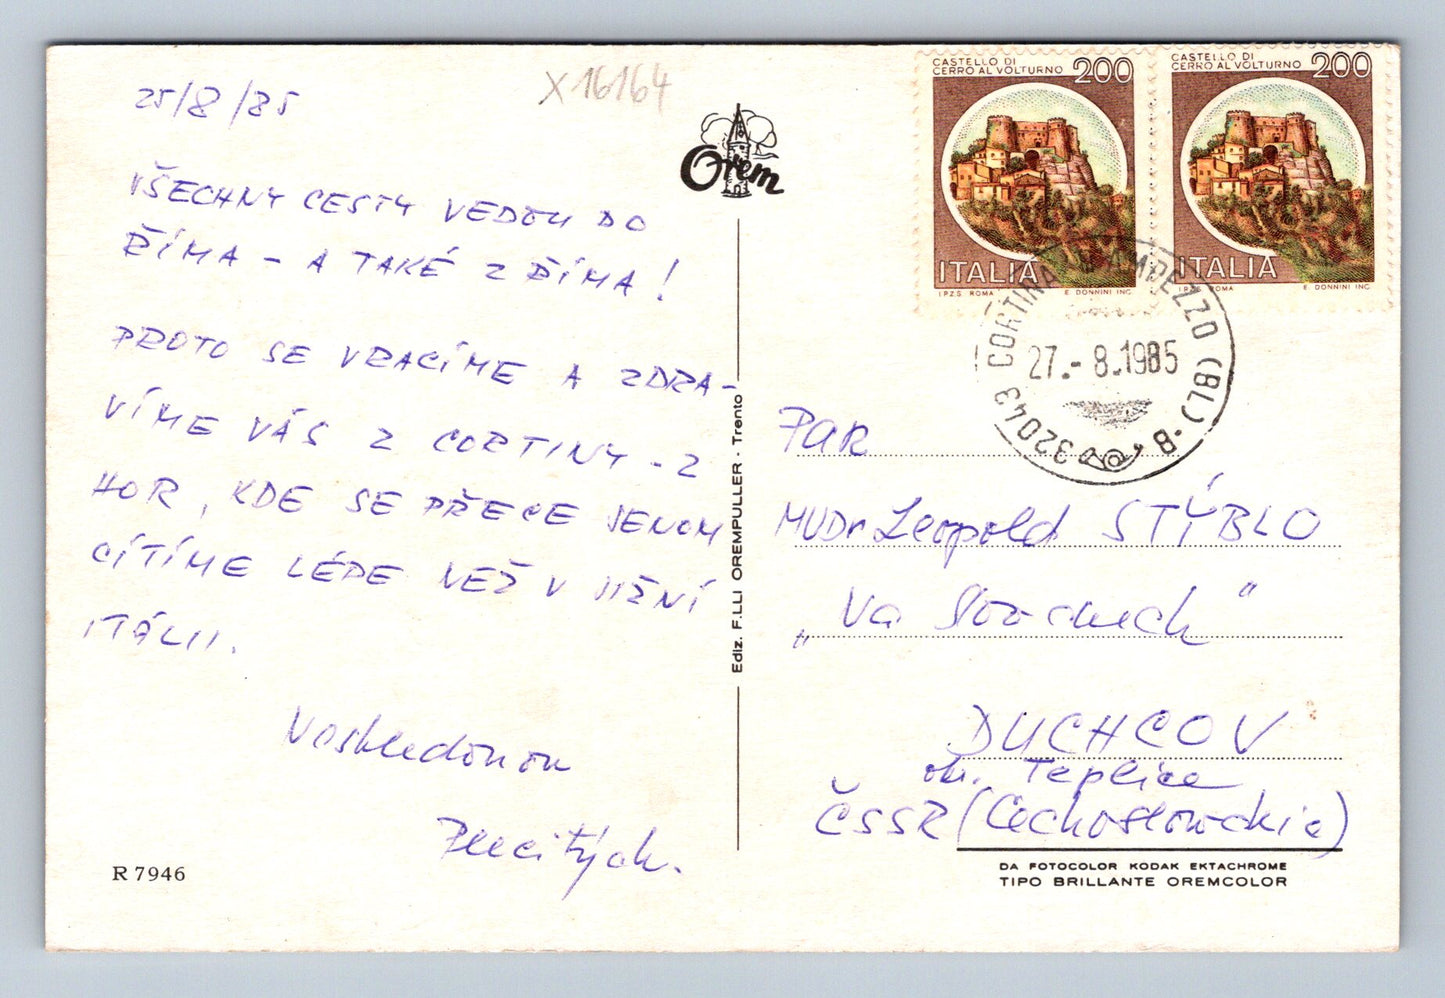 25/8/85
X 16164
VŠECHNY CESTY VEDOU DO
ŘÍMA - A TAKÉ Z ŘÍMA!
PROTO SE VRACÍME A ZDRA-
VÍME VÁS Z CORTINY - Z
HOR, KDE SE PŘECE JENOM
CÍTÍME LÉPE NEŽ V JIŽNÍ
ITÁLII.
R 7946
Orem
Ediz. F.LLI OREMPULLER - Trento
CASTELLO DI
CERRO AL VOLTURNO 200
ITALIA
I.P.Z.S. ROMA E. DONNINI INC.
CASTELLO DI
CERRO AL VOLTURNO 200
ITALIA
I.P.Z.S. ROMA E. DONNINI INC.
32043 CORTINA D'AMPEZZO (BL) - B
27.-8.1985
PAR
MUDr Leopold STÝBLO
„Na
DUCHCOV
ok. Teplice
ČSSR (Cechoslovackia)
DA FOTOCOLOR KODAK EKTACHROME
TIPO BRILLANTE OREMCOLOR